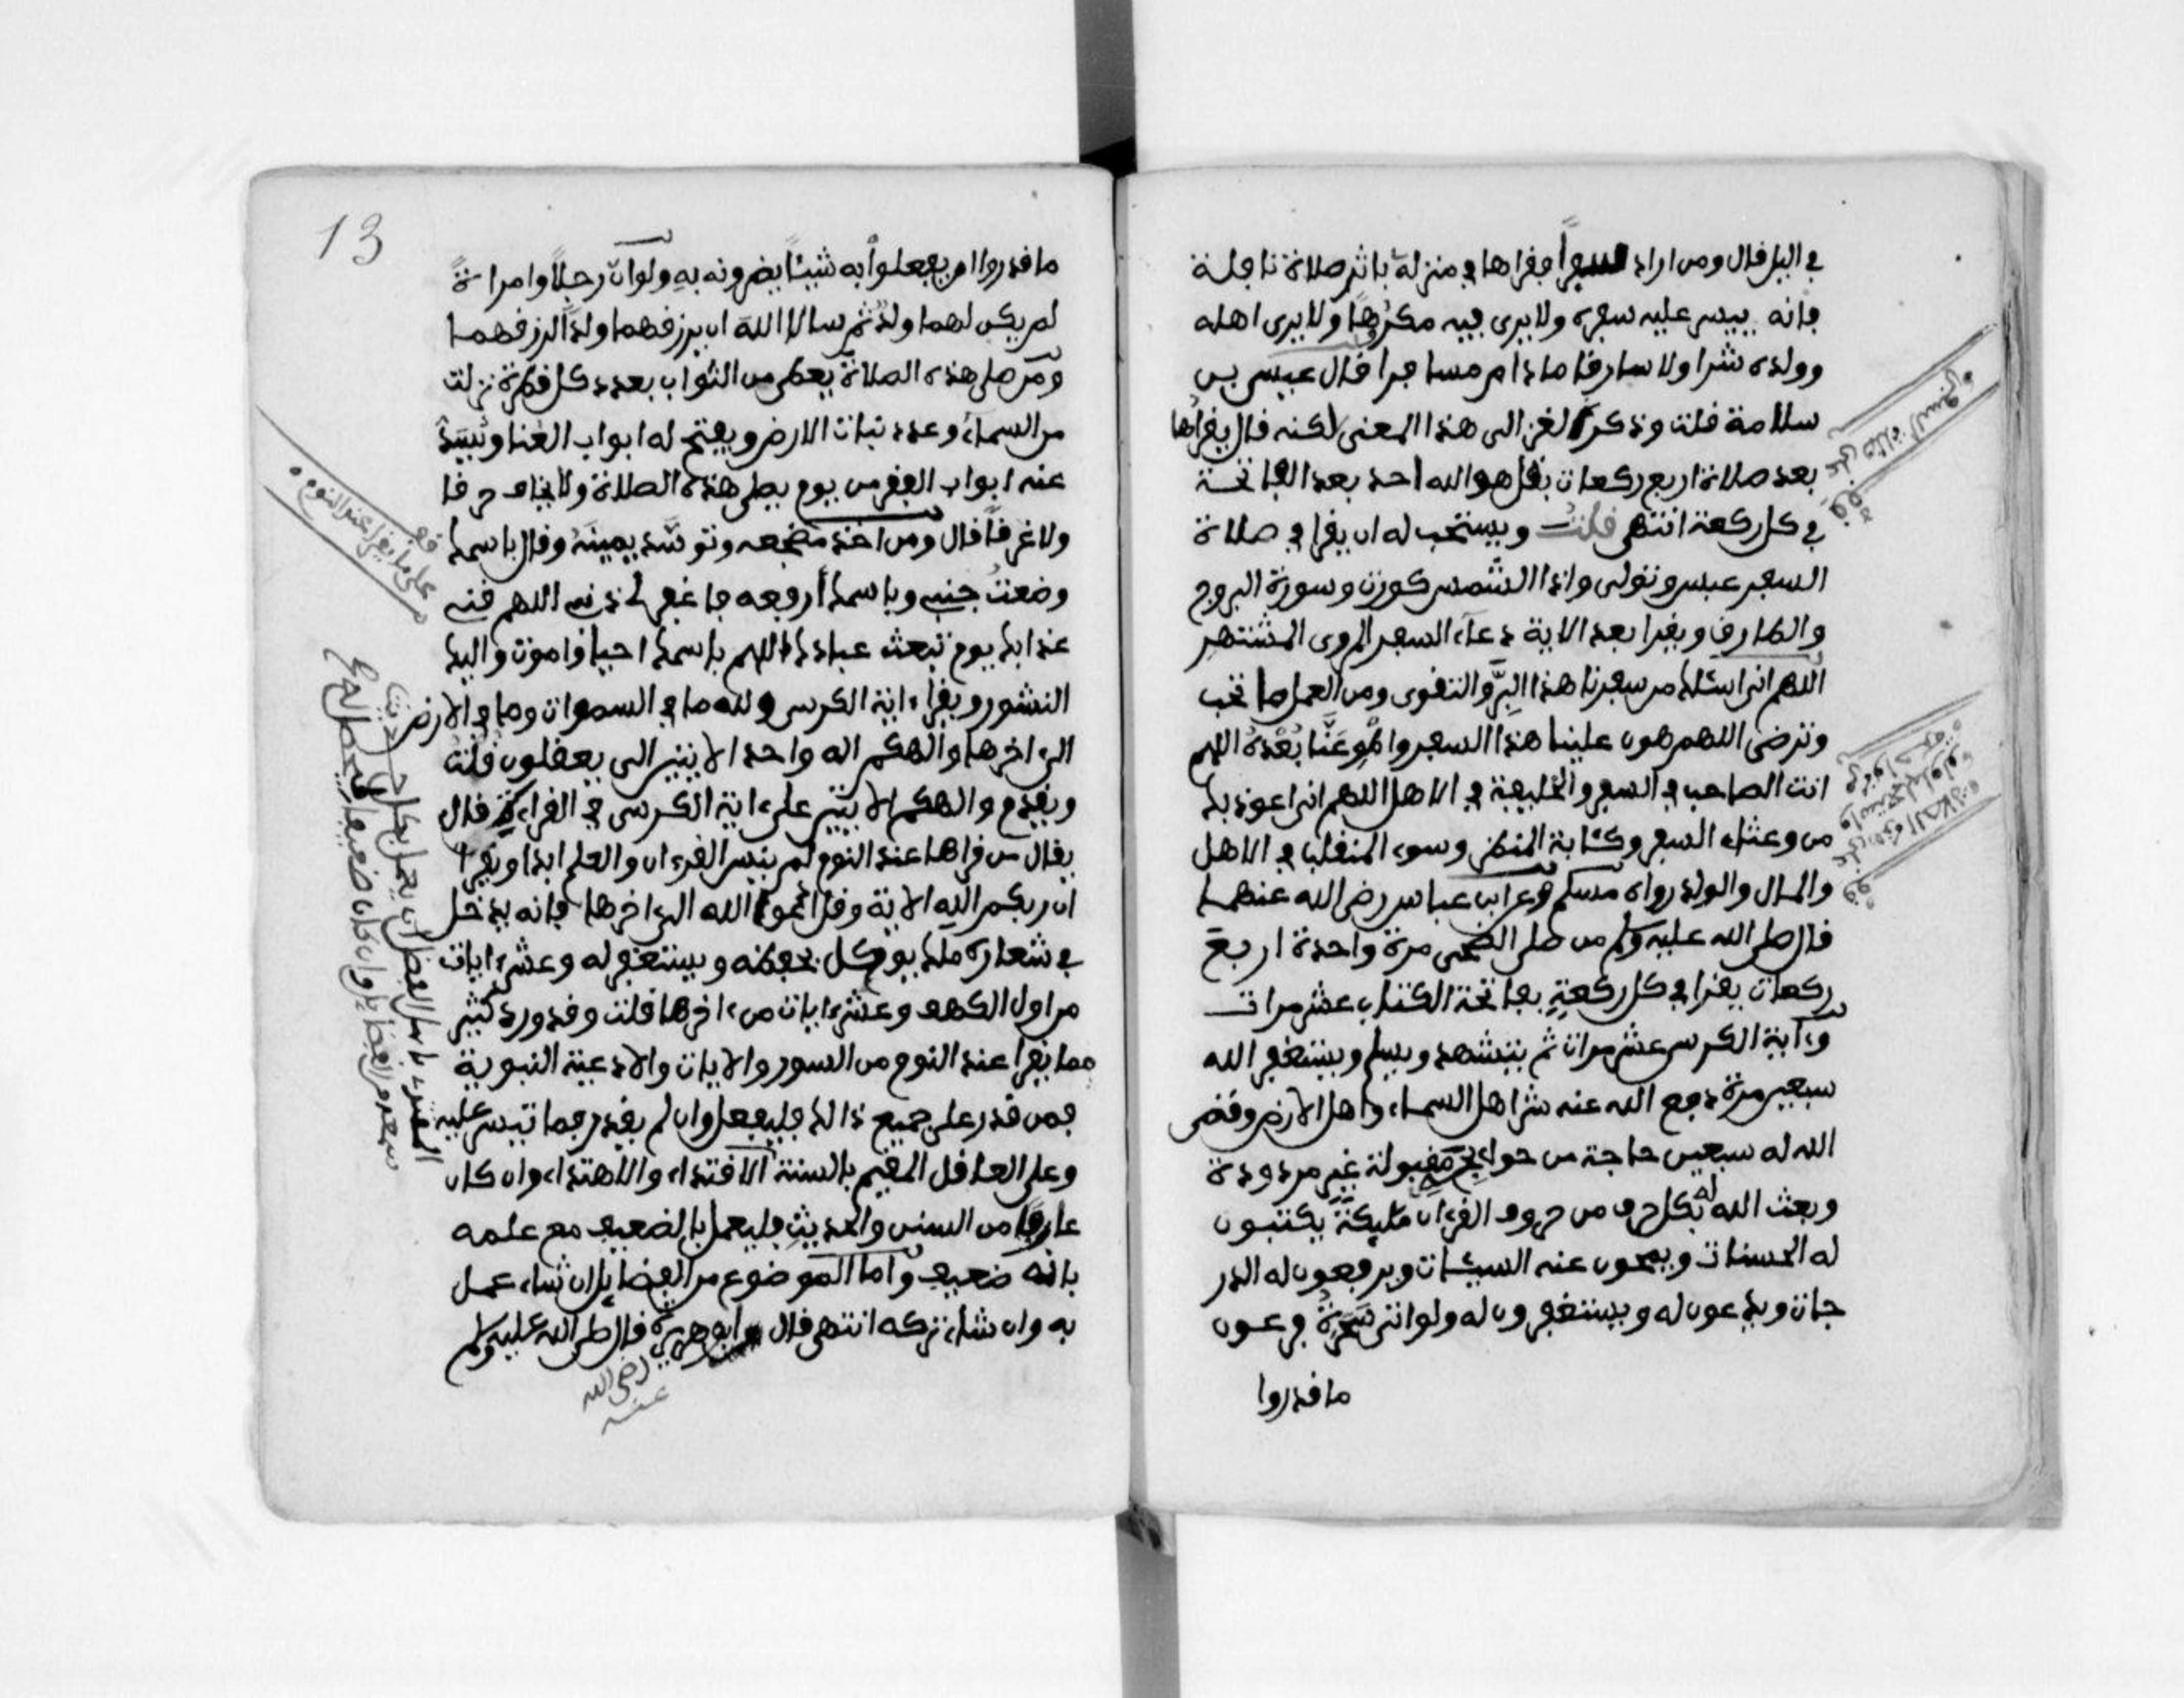 في اليل قال ومن اراد السفر فقراها في منزله باثر صلاة نافلة
فانه ييسر عليه سفره ولا يرى فيه مكرها ولا يرى اهله
وولده شرا ولا سارقا مادام مسافرا قال عيسى بن
سلامة قلت وذكر الغزالى هذا المعنى لكنه قال يقراها
بعد صلاة اربع ركعات بقل هو الله احد بعد الفاتحة
في كل ركعة انتهى قلت ويستحب له ان يقرا في صلاة
السفر عبس وتولى واذا الشمس كورت وسورة البروج
والطارق ويقرا بعد الاية دعاء السفر المروى المشتهر
اللهم انى اسئلك من سفرنا هذا البر والتقوى ومن العمل ما تحب
وترضى اللهم هون علينا هذا السفر واطو عنا بعده اللهم
انت الصاحب في السفر والخليفة في الاهل اللهم انى اعوذ بك
من وعثاء السفر وكئابة المنظر وسوء المنقلب في الاهل
والمال والولد رواه مسلم وعن ابن عباس رضى الله عنهما
قال صلى الله عليه وسلم من صلى الضحى مرة واحدة اربع
ركعات يقرا في كل ركعة بفاتحة الكتاب عشر مرات
وءاية الكرسى عشر مرات ثم يتشهد ويسلم ويستغفر الله
سبعين مرة دفع الله عنه شر اهل السماء واهل الارض وقضى
الله له سبعين حاجة من حوائجه مقبولة غير مردودة
وبعث الله له بكل حرف من حروف القرءان مليكة يكتبون
له الحسنات ويمحون عنه السيئات ويرفعون له الدر
جات ويدعون له ويستغفرون له ولو اتى سحرة فرعون
ما قدروا
قف على صلاة السفر
قف على هذه الصلاة
13
ما قدروا ان يفعلوا به شيئا يضرونه به ولو ان رجلا وامراة
لم يكن لهما ولد ثم سالا الله ان يرزقهما ولدا لرزقهما
ومن صلى هذه الصلاة يعطى من الثواب بعدد كل قطرة نزلت
من السماء وعدد نبات الارض ويفتح له ابواب الغنا وتسد
عنه ابواب الفقر من يوم يصلى هذه الصلاة ولا يخاف حرقا
ولا غرقا قال ومن اخذ مضجعه وتوسد يمينه وقال باسمك
وضعت جنبى وباسمك أرفعه فاغفر لى ذنبى اللهم قنى
عذابك يوم تبعث عبادك اللهم باسمك احيا واموت واليك
النشور ويقرأ ءاية الكرسى ولله ما في السموات وما في الارض
الى اخرها والهكم اله واحد الايتين الى يعقلون قلت
ويقدم والهكم الايتين على ءاية الكرسى في القراءة قال
يقال من قراها عند النوم لم ينس القرءان والعلم ابدا ويقرا
ان ربكم الله الاية وقل ادعوا الله الى اخرها فانه يدخل
في شعاره ملك يوكل بحفظه ويستغفر له وعشر ءايات
من اول الكهف وعشر ءايات من ءاخرها قلت وقد ورد كثير
مما يقرا عند النوم من السور والايات والادعية النبوية
فمن قدر على جميع ذالك فليفعل وان لم يقدر فما تيسر عليه
وعلى العاقل المقيم بالسنة الاقتداء والاهتداء وان كان
عارفا من السنن والحديث فليعمل بالضعيف مع علمه
بانه ضعيف واما الموضوع من الفضايل ان شاء عمل
به وان شاء تركه انتهى قال ابو هريرة قال صلى الله عليه وسلم
رضى الله
عنه
قف
على ما يقرا عند النوم